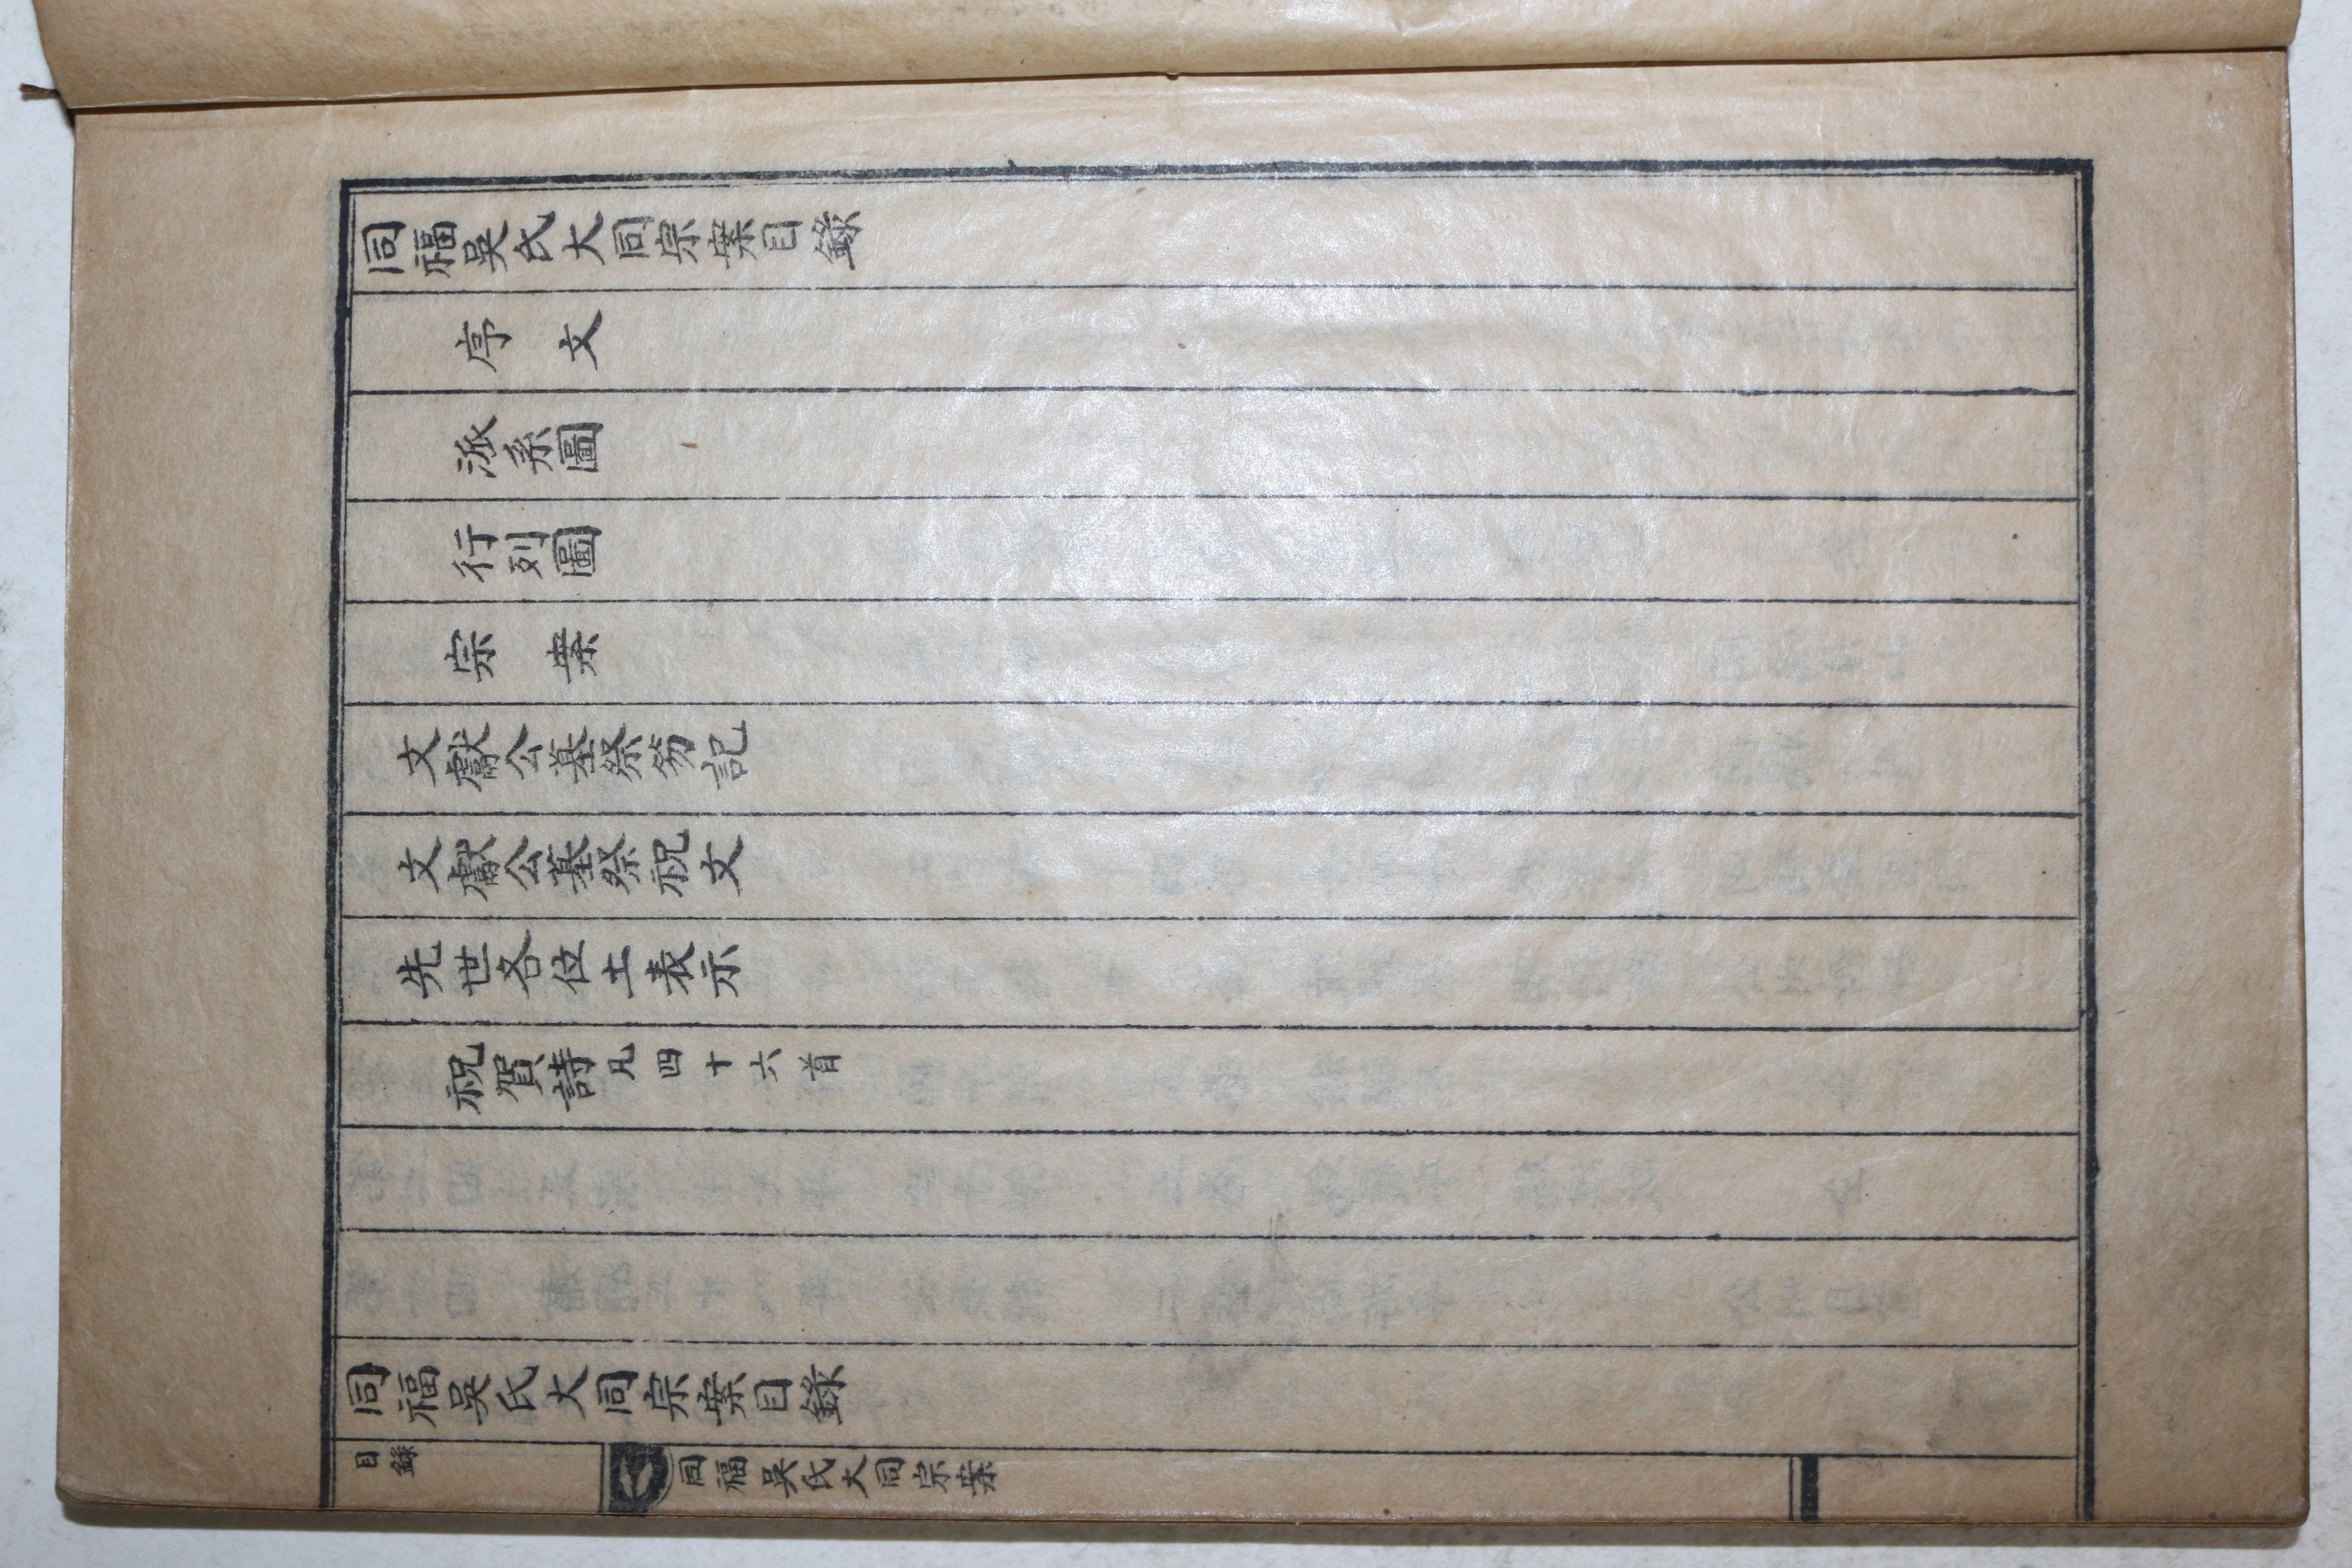 同福吳氏大同宗案目錄
序文
派系圖
行列圖
宗案
文獻公墓祭笏記
文獻公墓祭祝文
先世各位土表示
祝賀詩凡四十六首
同福吳氏大同宗案目錄
目錄
同福吳氏大同宗案